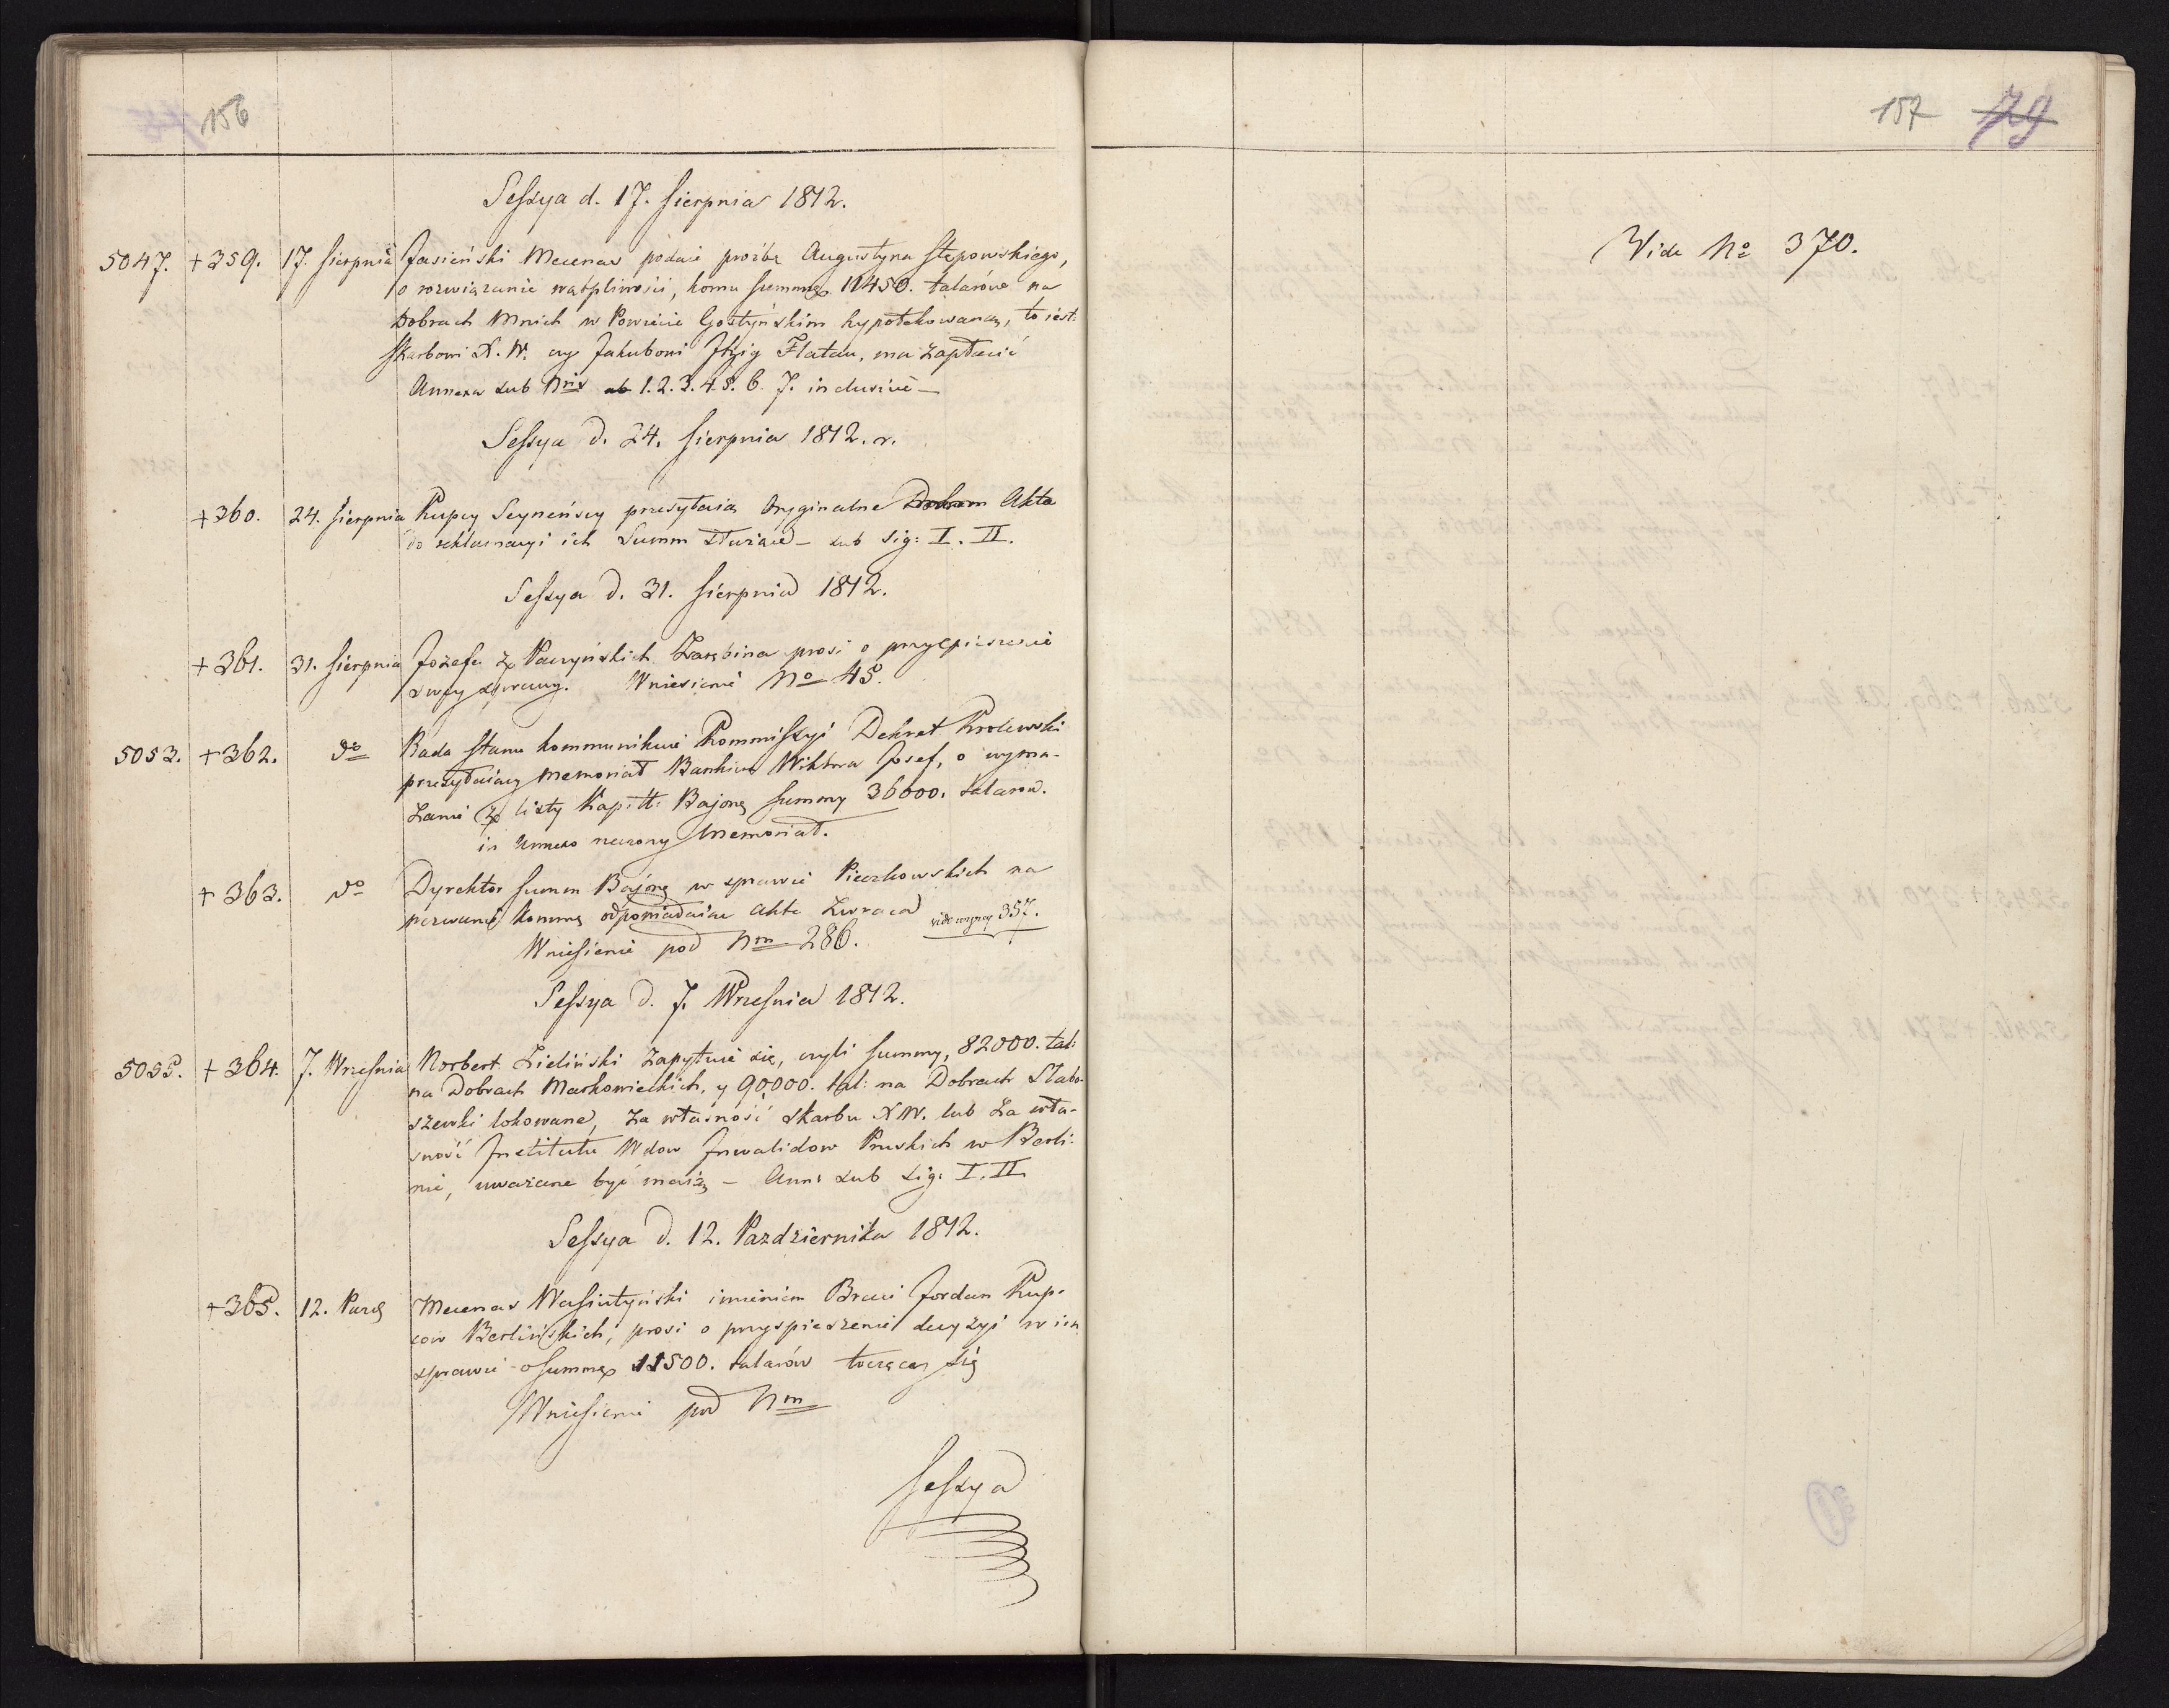 156
Sessya d. 17. Sierpnia 1812.
5047. +359. 17. Sierpnia Jasieński Mecenas podaie proźbę Augustyna Stępowskiego,
o rozwiązanie wątpliwości, komu summę 11450. talarów na
Dobrach Mnich w Powiecie Gostyńskim hypotekowaną, to iest:
Skarbowi X. W. czy Jakubowi Itzig Flatau, ma zapłacić
Annexa sub Nris ab 1. 2. 3. 4. 5. 6. 7. inclusive
Sessya d. 24. Sierpnia 1812. r.
+360. 24. Sierpnia Kupcy Seyneńscy przesyłaią Oryginalne Akta
do reklamacyi ich Summ służące – sub Sig: I. II.
Sessya d. 31. Sierpnia 1812.
+361. 31. Sierpnia Jozefa z Paczyńskich Zarębina prosi o przyspieszenie
swey sprawy. Wniesienie No 45.
5053. +362. do Rada Stanu kommunikuie Kommissyi Dekret Krolewski
przesyłaiący Memoriał Bankiera Wiktora Josef, o wyma-
zanie z listy Kapitt: Bajonę Summy 36000. talarow.
in Annexo rzeczony Memoriał.
+363. do Dyrektor Summ Bajonę w sprawie Pieczkowskich na
wezwanie Kommę odpowiadaiąc akta zwraca vide wyżey 357.
Wniesienie pod Nm 286.
Sessya d. 7. Wrzesnia 1812.
5055. +364. 7. Wrzesnia Norbert Zieliński zapytuie się, czyli Summy, 82000. tal:
na Dobrach Markowieckich, y 90000. tal: na Dobrach Słabo-
szewki lokowane, za własność skarbu X W. lub za wła-
sność Institutu Wdow Inwalidow Pruskich w Berli-
nie, uważane być maią – Ann: sub Sig: I. II.
Sessya d. 12. Pazdziernika 1812.
+365. 12. Paźdź Mecenas Wasiutyński imieniem Braci Jordan Kup-
cow Berlińskich, prosi o przyspieszenie decyzyi w ich
sprawie o Summę 11500. talarów toczącey się
Wniesienie pod Nm
Sessya
157 79
Vide No 370.